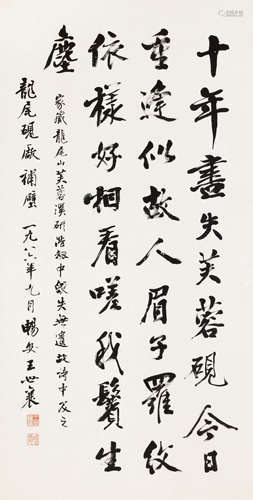 十年盡失芙蓉硯今日
重逢似故人眉子羅紋
依樣好相看嗟我鬢生
塵
家藏龍尾山芙蓉溪研浩劫中失無遺故詩中及之
龍尾硯廠補壁一九八六年九月暢安王世襄